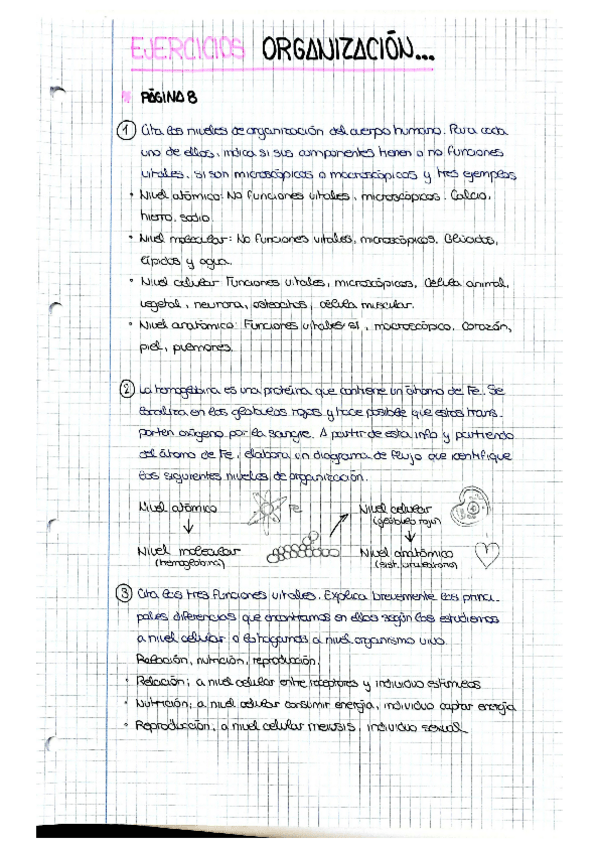 EJERCICIOS ORGANIZACIÓN...
PÁGINA 8
1 Cita los niveles de organización del cuerpo humano. Para cada
uno de ellos, indica si sus componentes tienen o no funciones
vitales, si son microscópicos o macroscópicos y tres ejemplos
• Nivel atómico: No funciones vitales, microscópicos. Calcio,
hierro, sodio.
• Nivel molecular: No funciones vitales, microscópicos. Glúcidos,
lípidos y agua.
• Nivel celular Funciones vitales, microscópicos, Célula animal,
vegetal, neurona, osteocitos, célula muscular.
• Nivel anatómico: Funciones vitales sí, macroscópico. Corazón,
piel, pulmones.
2 La hemoglobina es una proteína que contiene un átomo de Fe. Se
localiza en los glóbulos rojos y hace posible que estos trans-
porten oxígeno por la sangre. A partir de esta info y partiendo
del átomo de Fe, elabora un diagrama de flujo que identifique
los siguientes niveles de organización.
Nivel atómico Fe Nivel celular
(glóbulo rojo)
Nivel molecular Nivel anatómico
(hemoglobina) (sist. circulatorio)
3 Cita las tres funciones vitales. Explica brevemente las princi-
pales diferencias que encontramos en ellas según las estudiemos
a nivel celular o lo hagamos a nivel organismo vivo.
Relación, nutrición, reproducción.
• Relación; a nivel celular entre receptores y individuo estímulos
• Nutrición; a nivel celular consumir energía, individuo captar energía
• Reproducción; a nivel celular meiosis, individuo sexual